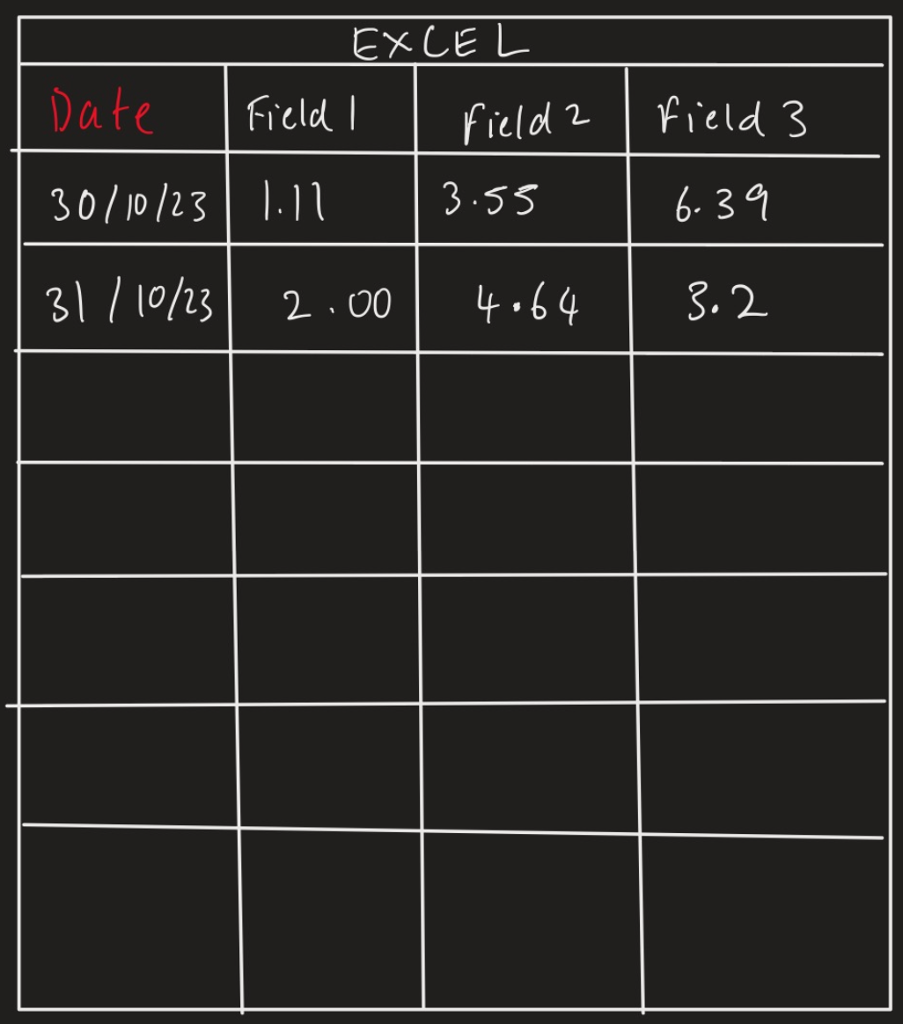 EXCEL
Date Field 1 Field 2 Field 3
30/10/23 1.11 3.55 6.39
31/10/23 2.00 4.64 3.2